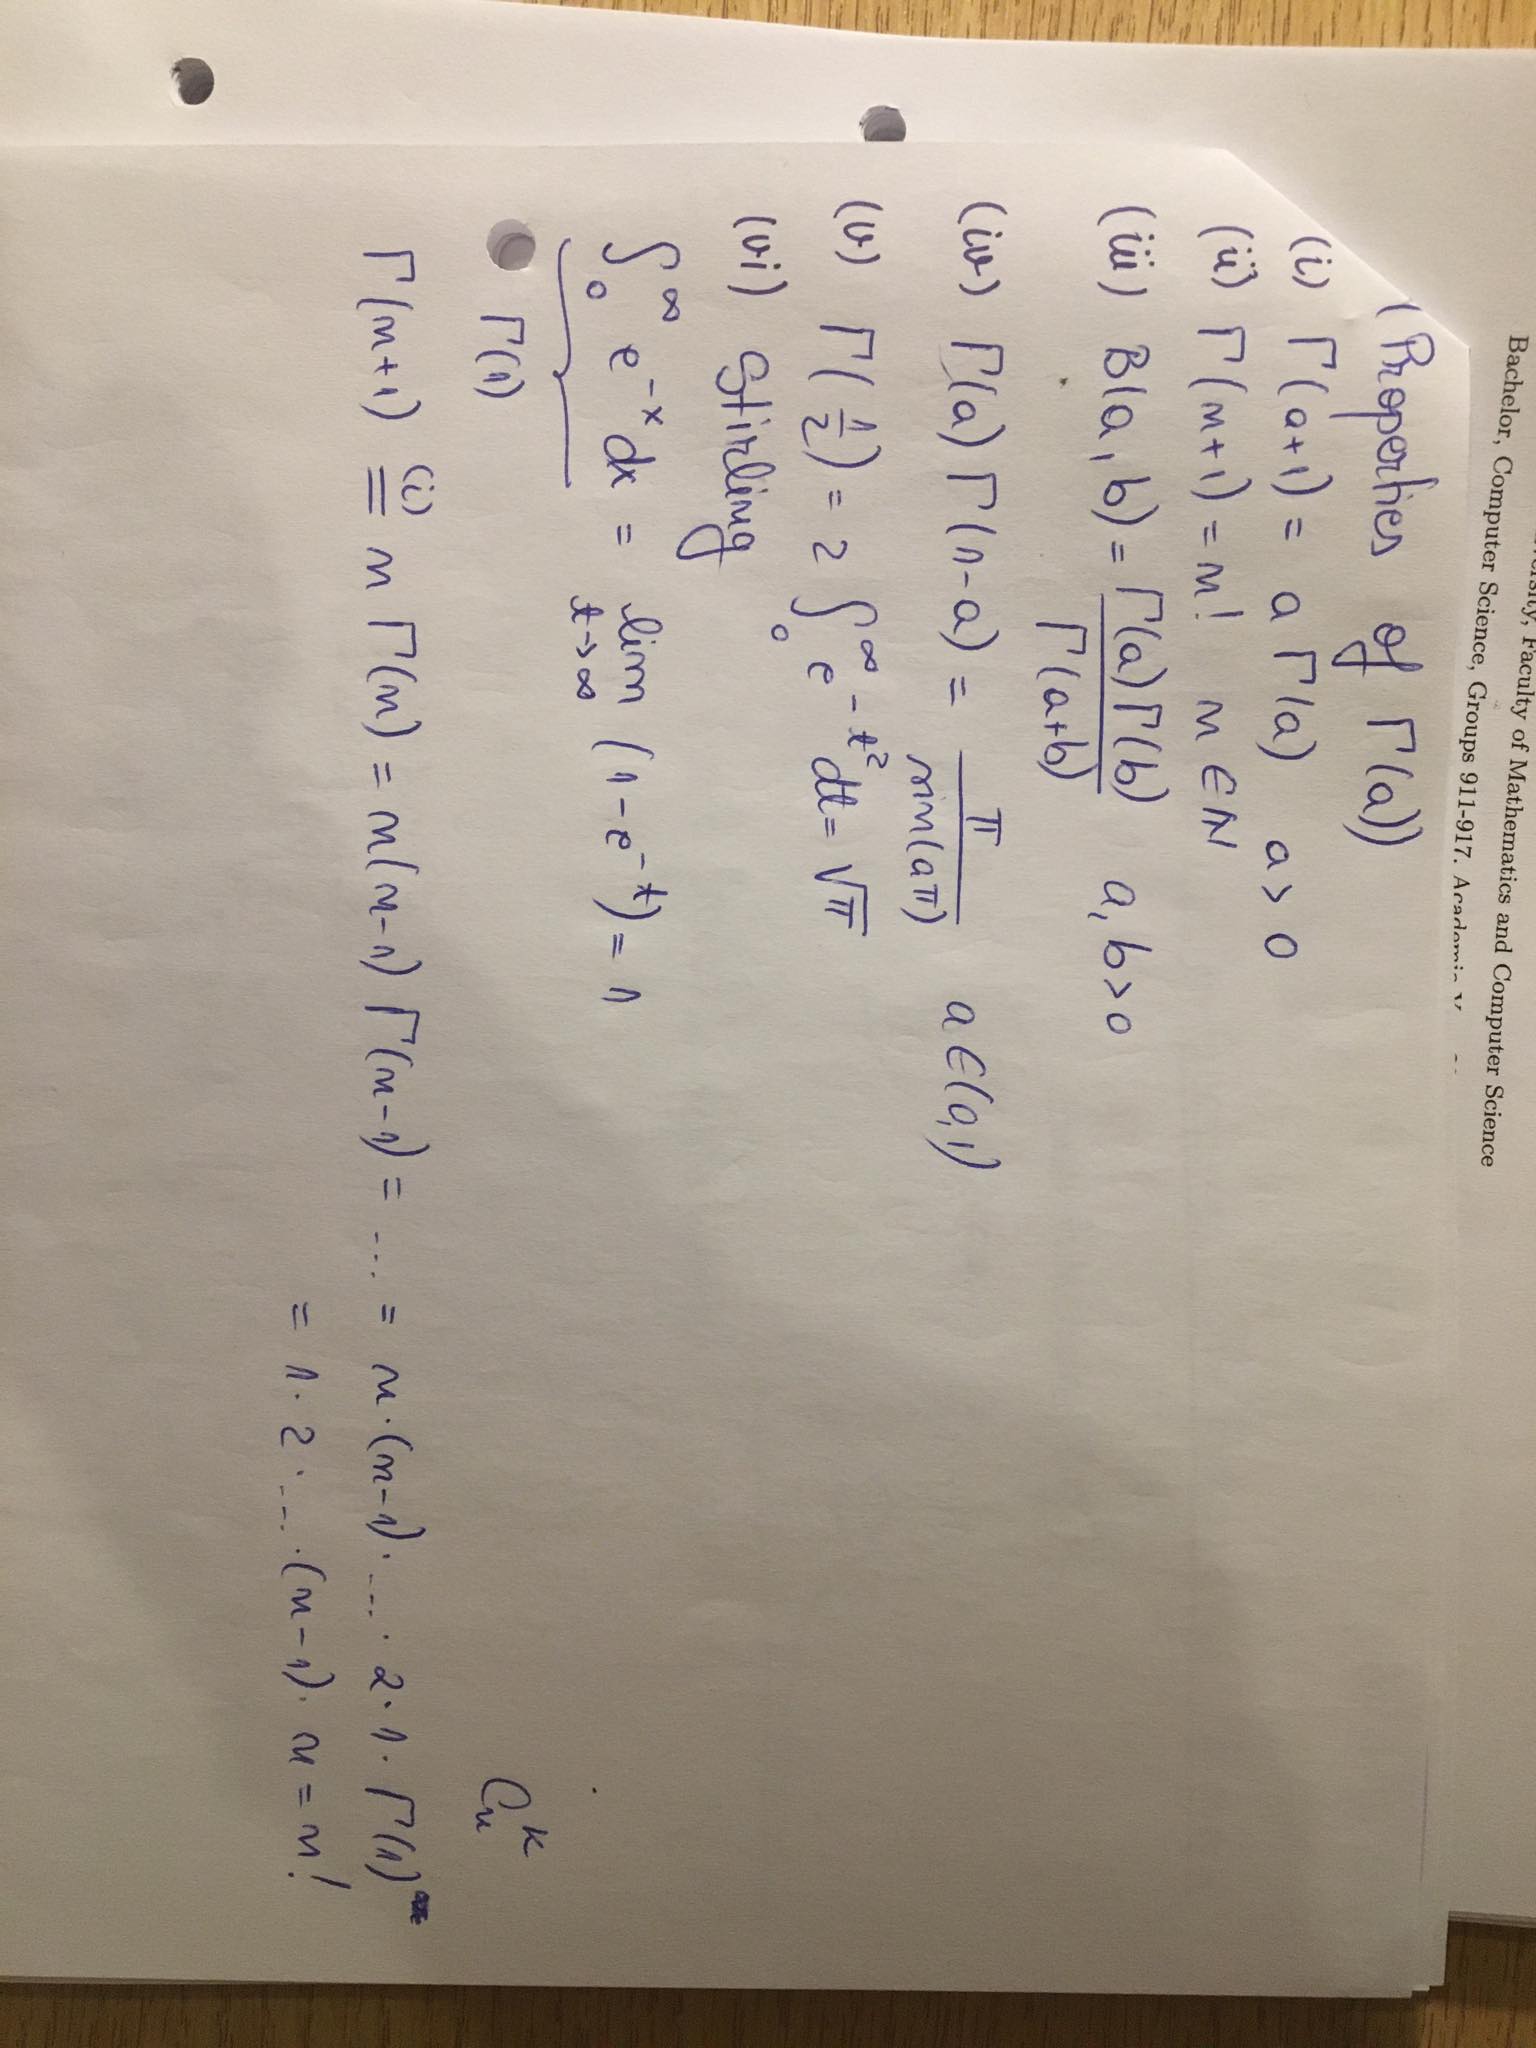 ersity, Faculty of Mathematics and Computer Science
Bachelor, Computer Science, Groups 911-917. Academic
(Properties of Γ(a))
(i) Γ(a+1) = a Γ(a) a > 0
(ii) Γ(n+1) = n! n ∈ ℕ
(iii) B(a, b) = Γ(a)Γ(b) / Γ(a+b) a, b > 0
(iv) Γ(a) Γ(1-a) = π / sin(aπ) a ∈ (0,1)
(v) Γ(1/2) = 2 ∫₀^∞ e^(-t²) dt = √π
(vi) Stirling
∫₀^∞ e^(-x) dx = lim t→∞ (1-e^(-t)) = 1
Γ(1)
C_n^k
Γ(n+1) (i)= n Γ(n) = n(n-1) Γ(n-1) = ... = n·(n-1)· ... · 2·1· Γ(1)
= 1·2· ... ·(n-1)· n = n!